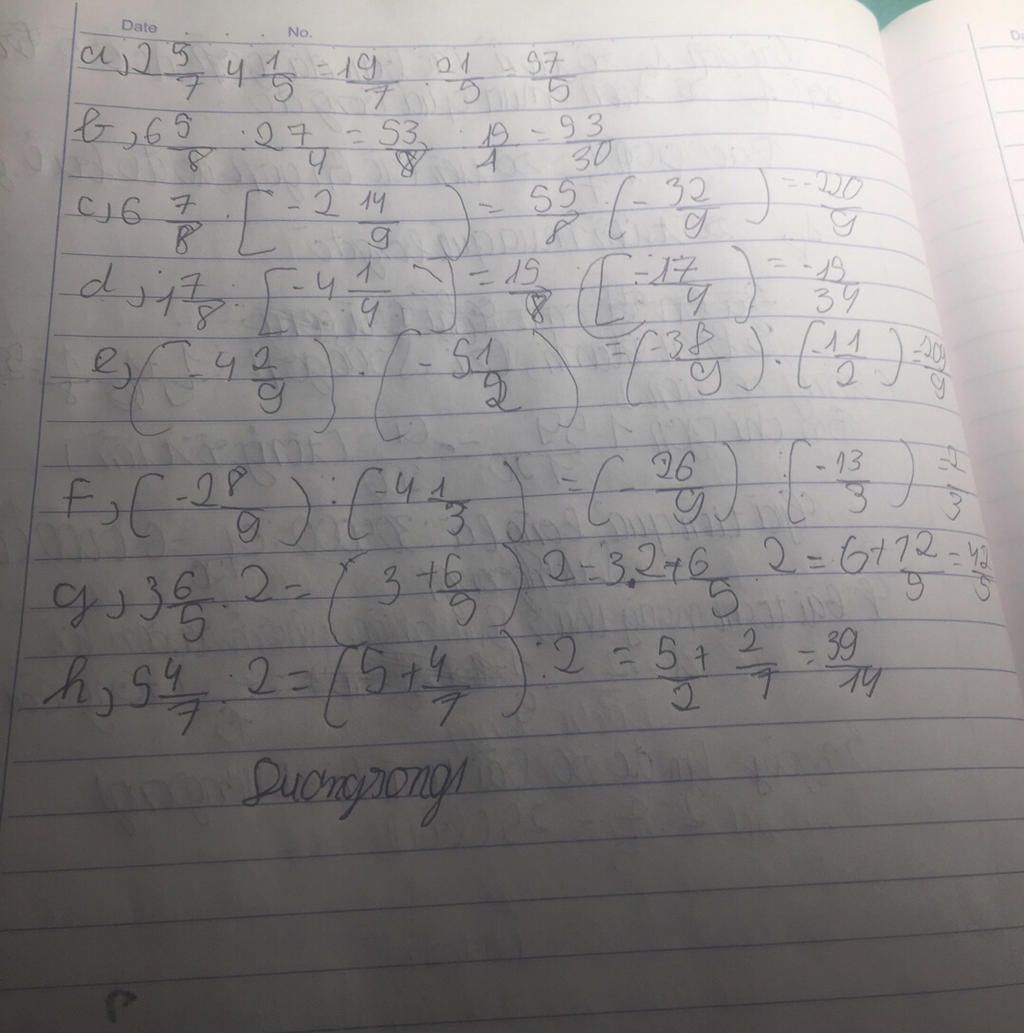 Date . . . No.
a, 2 5/7 4 1/5 = 19/7 . 21/5 = 57/5
b, 6 5/8 : 2 7/4 = 53/8 : 19/1 = 53/30
c, 6 7/8 . [- 2 14/9) = 55/8 . (- 32/9) = -220/9
d, 1 7/8 : [-4 1/4) = 15/8 : ([-17/4) = -15/34
e, (-4 2/9) . (- 5 1/2) = (-38/9) . (-11/2) = 209/9
f, (-2 8/9) : (-4 1/3) = (- 26/9) : (-13/3) = 2/3
g, 3 6/5 . 2 = (3 + 6/5) 2 = 3.2 + 6/5 . 2 = 6 + 12/5 = 42/5
h, 5 4/7 : 2 = (5 + 4/7) : 2 = 5/2 + 2/7 = 39/14